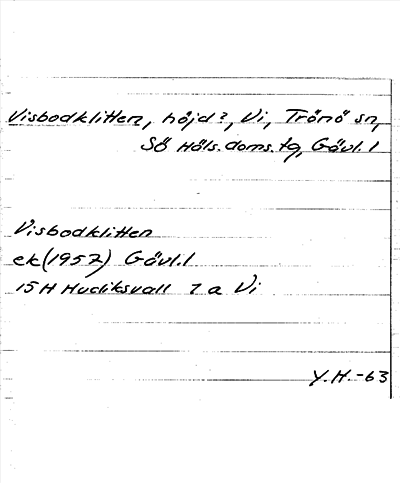 Visbodklitten, höjd?, Vi, Trönö sn,
Sö Häls.doms.tg, Gävl.l
Visbodklitten
ek(1957) Gävl.l
15H Hudiksvall 7 a Vi
Y.H.-63